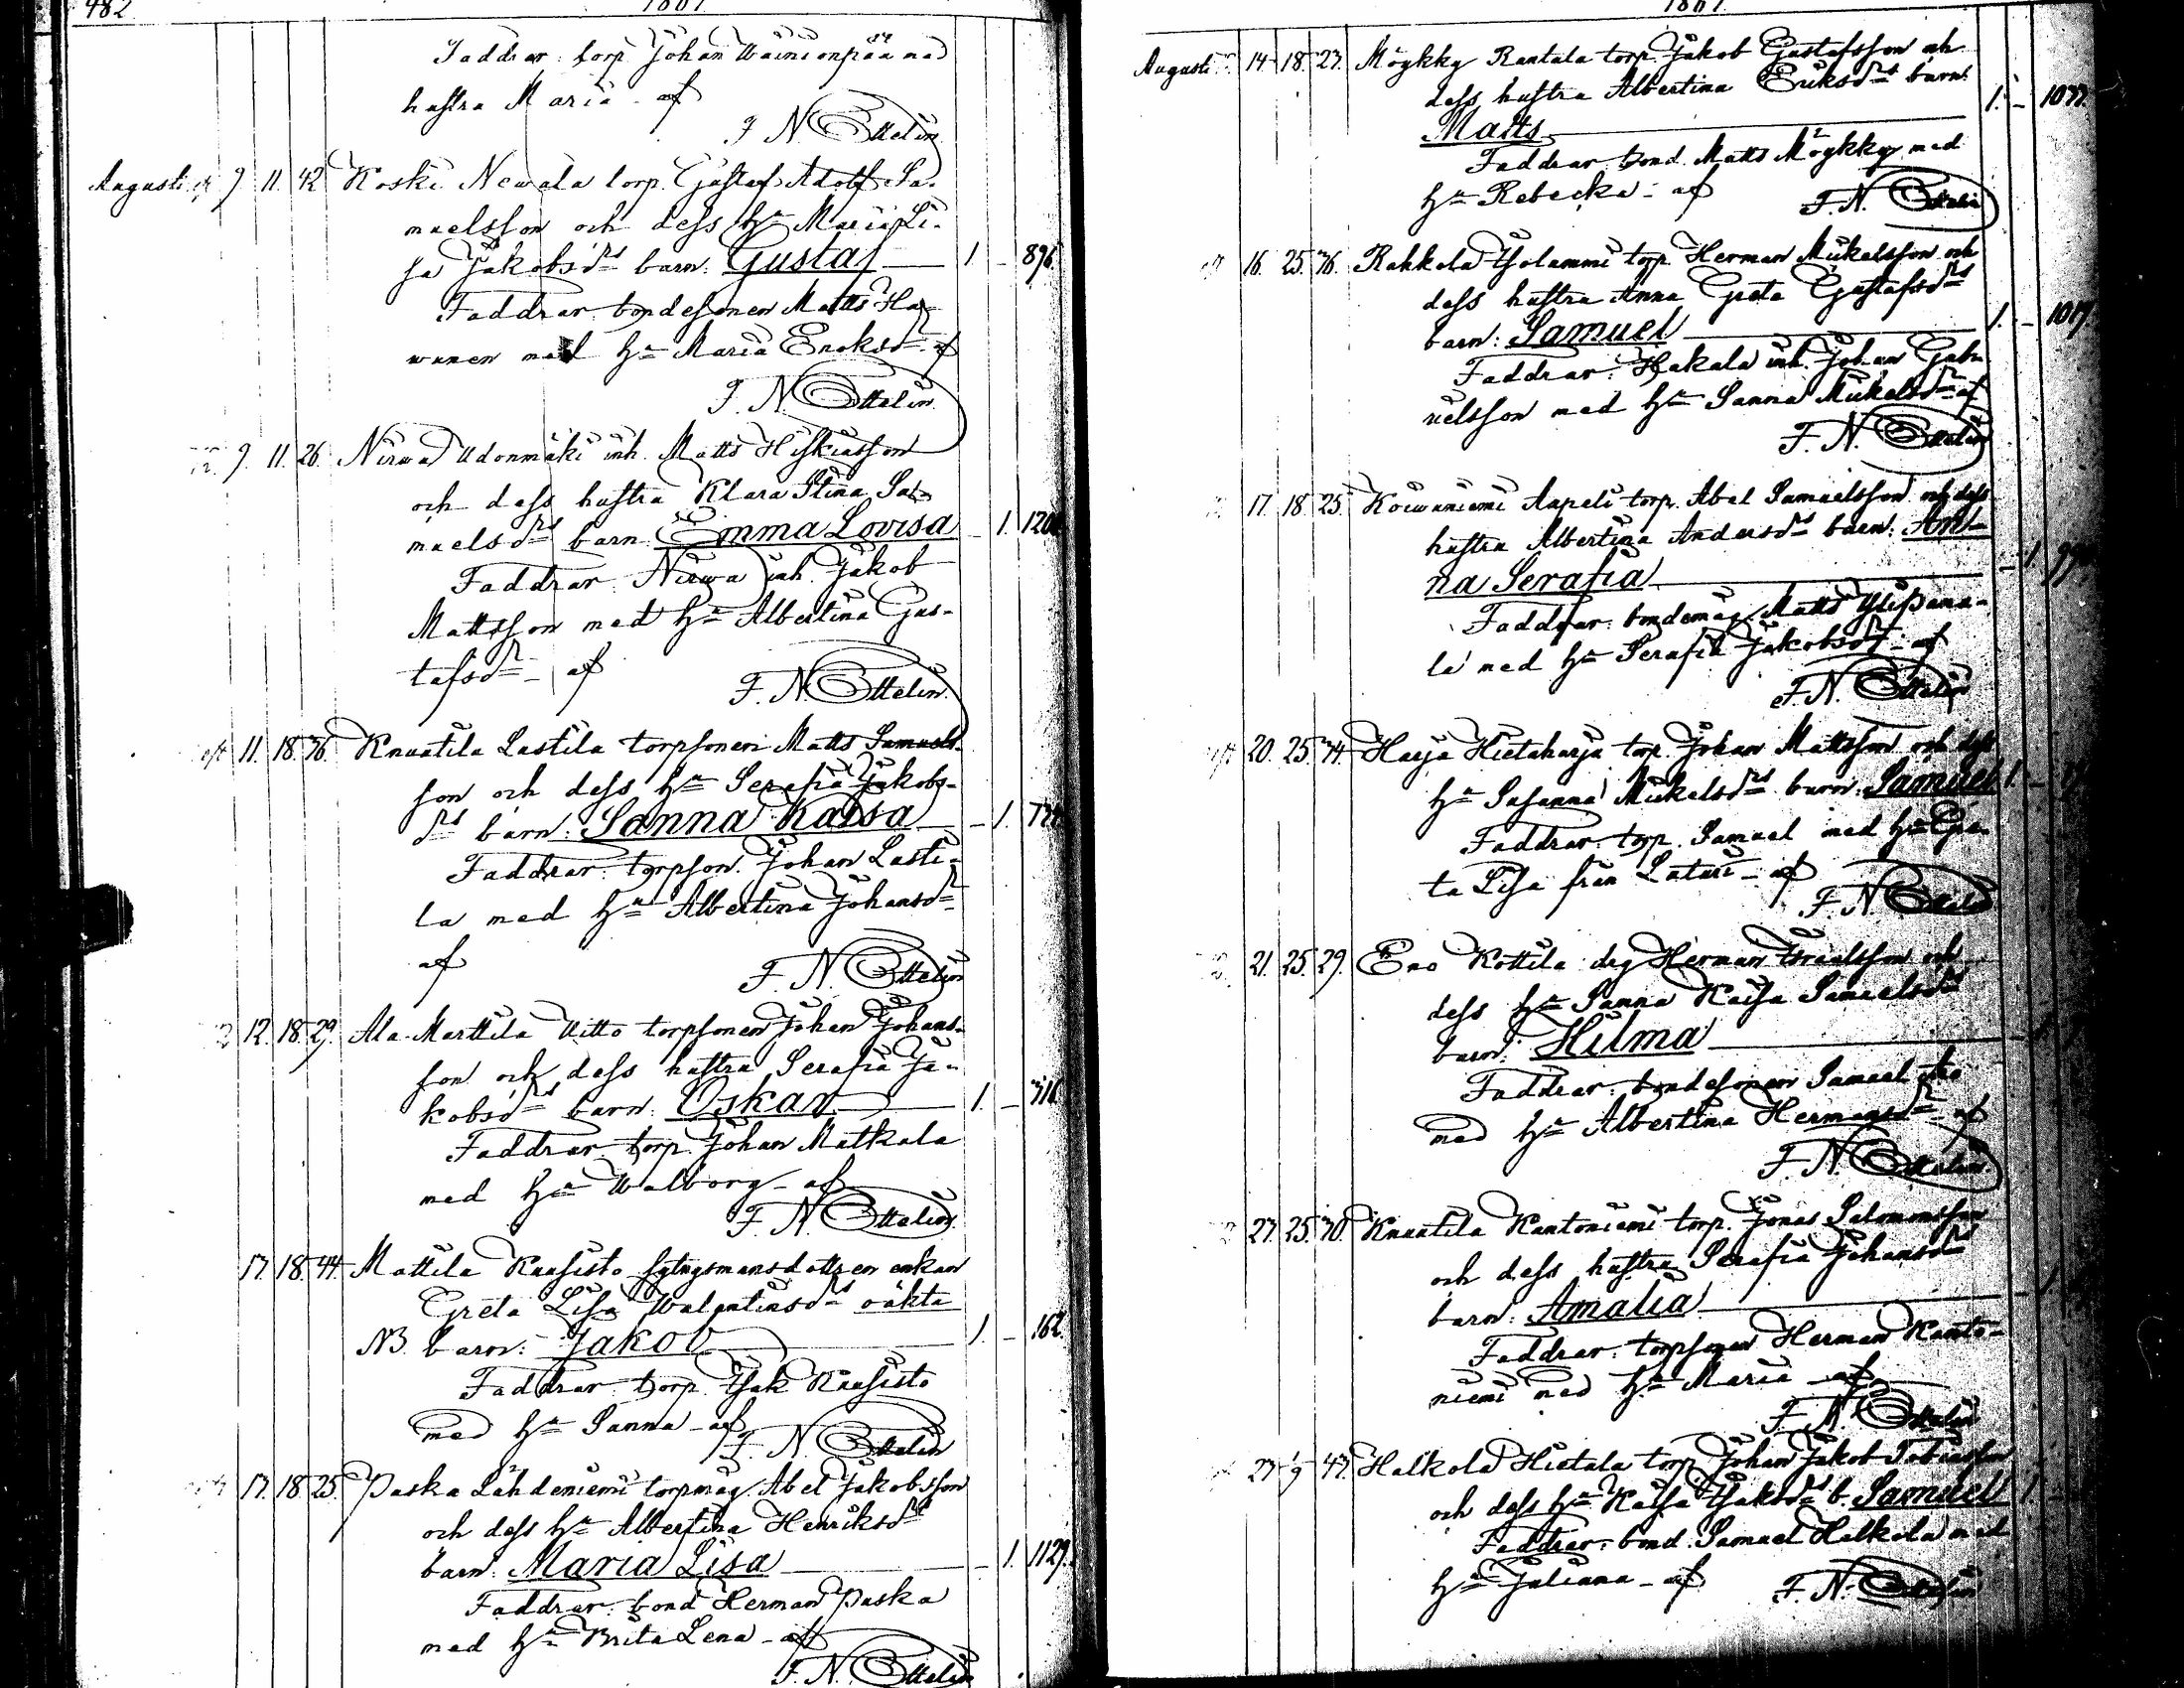 482
1867
Faddrar: torp. Johan Wainionpää med
hustra Maria - af
F. N. Ottelin
Augusti 9 11. 42 Koski Newala torp. Gustaf Adolf Sa-
muelsson och dess hu Maria Li-
sa Jakobsdrs barn: Gustaf 1 - 896.
Faddrar: bondesonen Matts Ha-
wunen med hu Maria Enoksdr - af
F. N. Ottelin
9. 11. 26. Nirwa Udonmäki inh. Matts Hiskiasson
och dess hustra Klara Stina Sa-
muelsdrs barn: Emma Lovisa - 1.
Faddrar: Nirwa inh. Jakob
Mattsson med hu Albertina Gus-
tafsdr - af
F. N. Ottelin.
11. 18. 76. Knuutila Lastila torpsonen Matts Samuels-
son och dess hu Serafia Jakobs-
drs barn: Sanna Kaisa - 1.
Faddrar: torpson. Johan Lasti-
la med hu Albertina Johansdr
af
F. N. Ottelin
12. 18. 29. Ala-Marttila Uitto torpsonen Johan Johans-
son och dess hustra Serafia Ja-
kobsdrs barn: Oskar 1. - 316.
Faddrar: torp. Johan Matkala
med hu Walborg - af
F. N. Ottelin.
17. 18. 44. Mattila Kuusisto sytngsmansdottren enkan
Greta Lisa Walentinsdrs oäkta
NB. barn: Jakob 1. - 162.
Faddrar: torp. Isak Kuusisto
med hu Sanna - af
F. N. Ottelin
17. 18. 25. Paska Lähdeniemi torpmåg Abel Jakobsson
och dess hu Albertina Henriksdrs
barn: Maria Lisa - 1. 1129.
Faddrar: bond. Herman Paska
med hu Brita Lena - af
F. N. Ottelin
1867.
Augusti 14. 18. 27. Möykky Rantala torp. Jakob Gustafsson och
dess hustra Albertina Eriksdrs barn:
Matts 1. - 1077.
Faddrar: bond. Matts Möykky med
hu Rebecka - af
F. N. Ottelin
16. 25. 76. Rahkola Yolammi torp. Herman Mickelsson och
dess hustra Anna Greta Gustafsdrs
barn: Samuel 1. - 1017.
Faddrar: Hakala inh. Johan Gab-
rielsson med hu Sanna Mickelsdr - af
F. N. Ottelin
17. 18. 25. Koiwuniemi Aapeli torp. Abel Samuelsson och dess
hustra Albertina Andersdrs barn: An-
na Serafia - 1.
Faddrar: bondemåg. Matts Ylipanu-
la med hu Serafia Jakobsdr - af
F. N. Ottelin
20. 25. 44. Harja Hietaharja torp. Johan Mattsson och dess
hu Susanna Mickelsdrs barn: Samuel 1. -
Faddrar: torp. Samuel med hu Gre-
ta Lisa från Laturi - af
F. N. Ottelin
21. 25. 29. Eno Kottila drg Herman Israelsson och
dess hu Sanna Kaisa Samuelsdrs
barn: Hilma
Faddrar: bondesonen Samuel Eno
med hu Albertina Hermansdr - af
F. N. Ottelin.
27. 25. 30. Knuutila Kantoniemi torp. Jonas Salomonsson
och dess hustra Serafia Johansdrs
barn: Amalia 1.
Faddrar: torpsonen Herman Kanto-
niemi med hu Maria - af
F. N. Ottelin
27. 1/9 47. Halkola Hietala torp. Johan Jakob Tobiasson
och dess hu Kaisa Isaksdrs b. Samuel 1. -
Faddrar: bond. Samuel Halkola med
hu Juliana - af
F. N. Ottelin